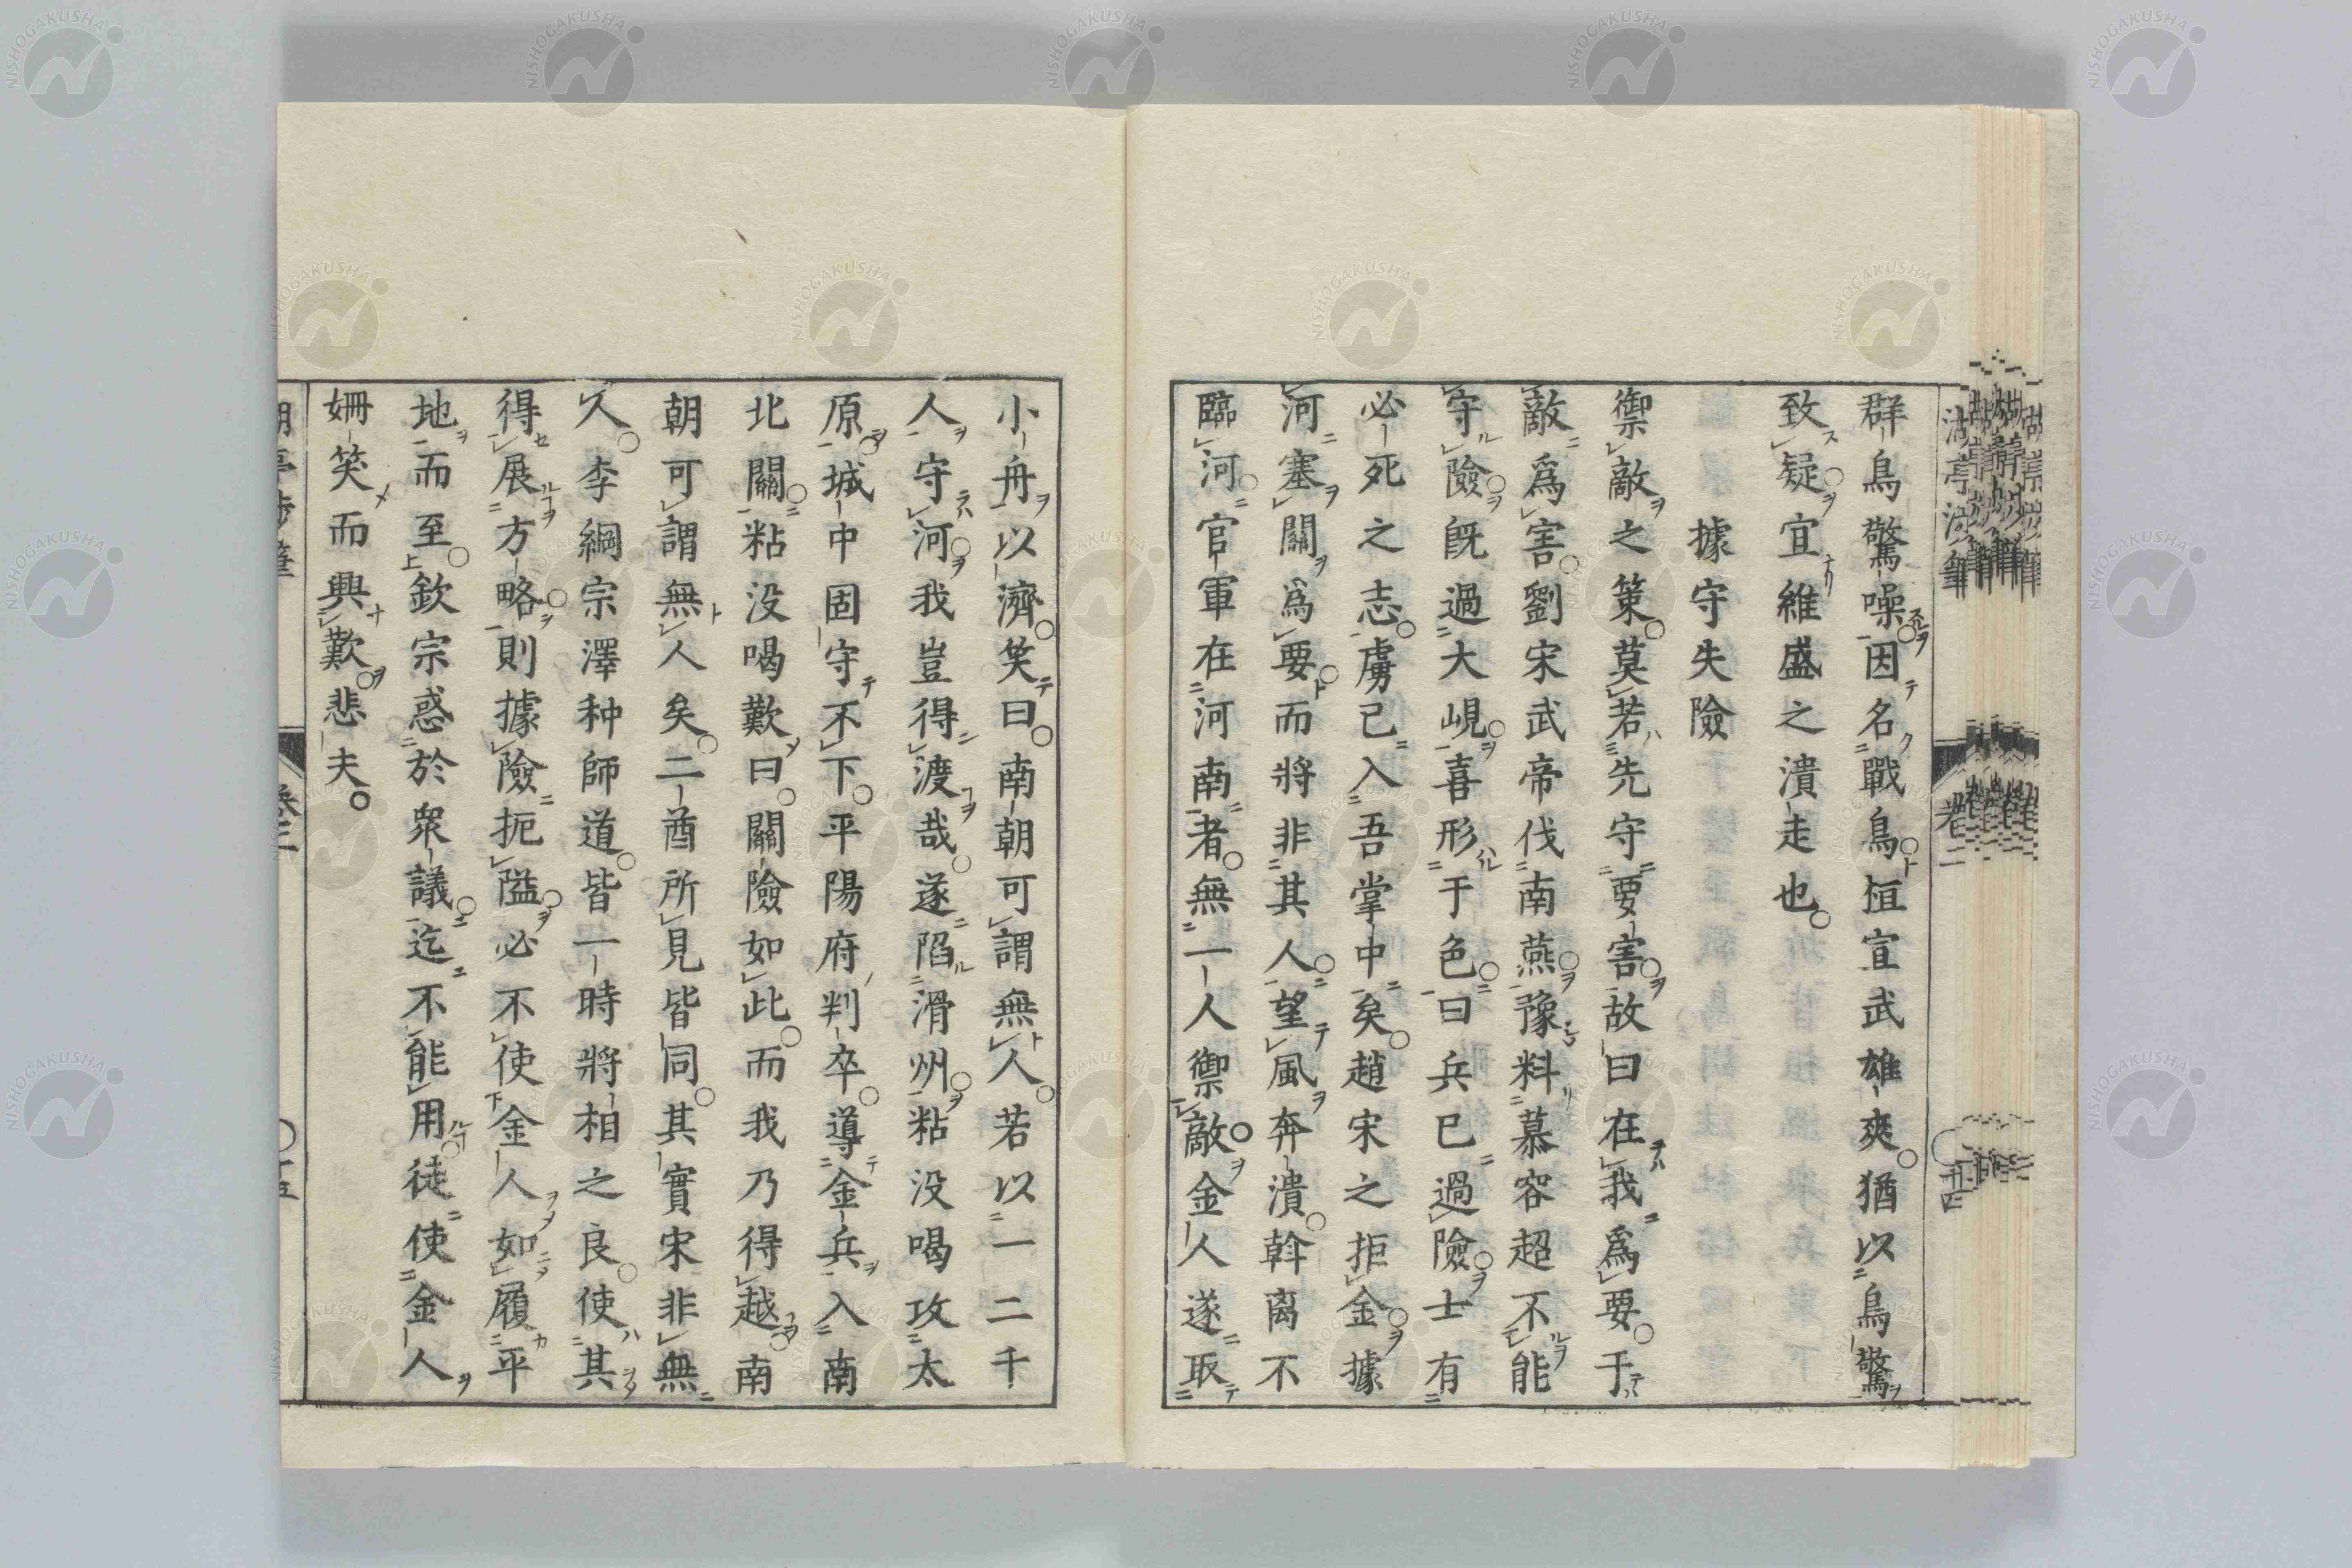 群鳥驚噪因名戰鳥桓宣武雄爽猶以鳥驚
致疑宜維盛之潰走也
據守失險
禦敵之策莫若先守要害故曰在我爲要于
敵爲害劉宋武帝伐南燕豫料慕容超不能
守險旣過大峴喜形于色曰兵已過險士有
必死之志虜已入吾掌中矣趙宋之拒金據
河塞關爲要而將非其人望風奔潰斡离不
臨河官軍在河南者無一人禦敵金人遂取
小舟以濟笑曰南朝可謂無人若以一二千
人守河我豈得渡哉遂陷滑州粘没喝攻太
原城中固守不下平陽府判卒導金兵入南
北關粘没喝歎曰關險如此而我乃得越南
朝可謂無人矣二酋所見皆同其實宋非無
人李綱宗澤种師道皆一時將相之良使其
得展方略則據險扼隘必不使金人如履平
地而至欽宗惑於衆議迄不能用徒使金人
姍笑而興歎悲夫